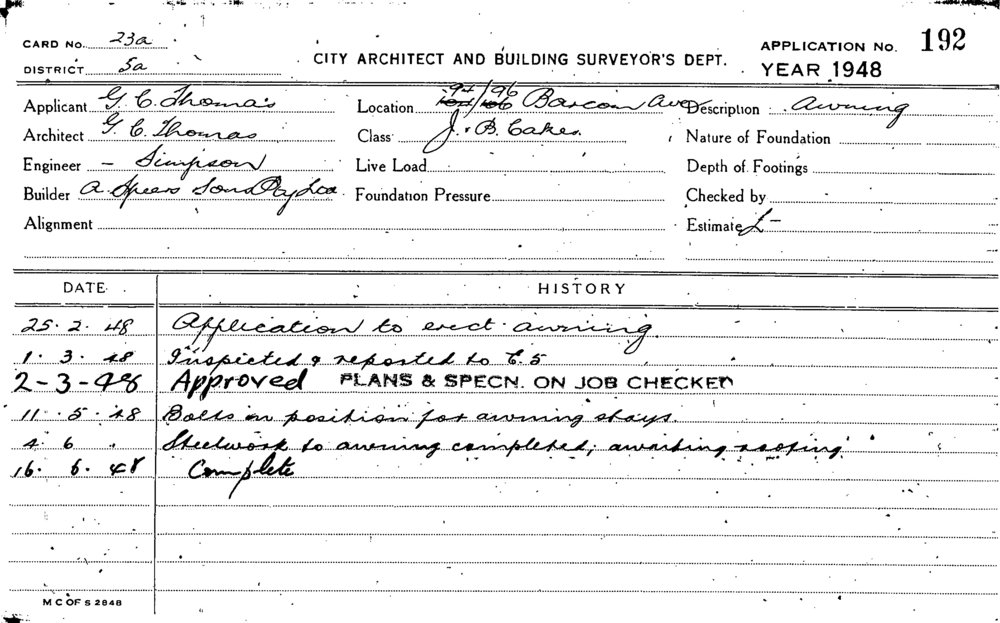 CARD No. 23a
DISTRICT 5a
CITY ARCHITECT AND BUILDING SURVEYOR'S DEPT.
APPLICATION No. 192
YEAR 1948
Applicant G. C. Thomas
Location 94/96 Barcom Ave
Description Awning
Architect G. C. Thomas
Class J. B. Cakes.
Nature of Foundation
Engineer - Simpson
Live Load
Depth of Footings
Builder A. Spears Sons Pty Ltd
Foundation Pressure
Checked by
Alignment
Estimate £ -
DATE HISTORY
25. 2. 48 Application to erect awning.
1. 3. 48 Inspected & reported to C. 5
2-3-48 Approved PLANS & SPECN. ON JOB CHECKED
11. 5. 48 Bolts in position for awning stays.
4. 6 " Steelwork to awning completed; awaiting roofing
16. 6. 48 Complete
M C OF S 2848